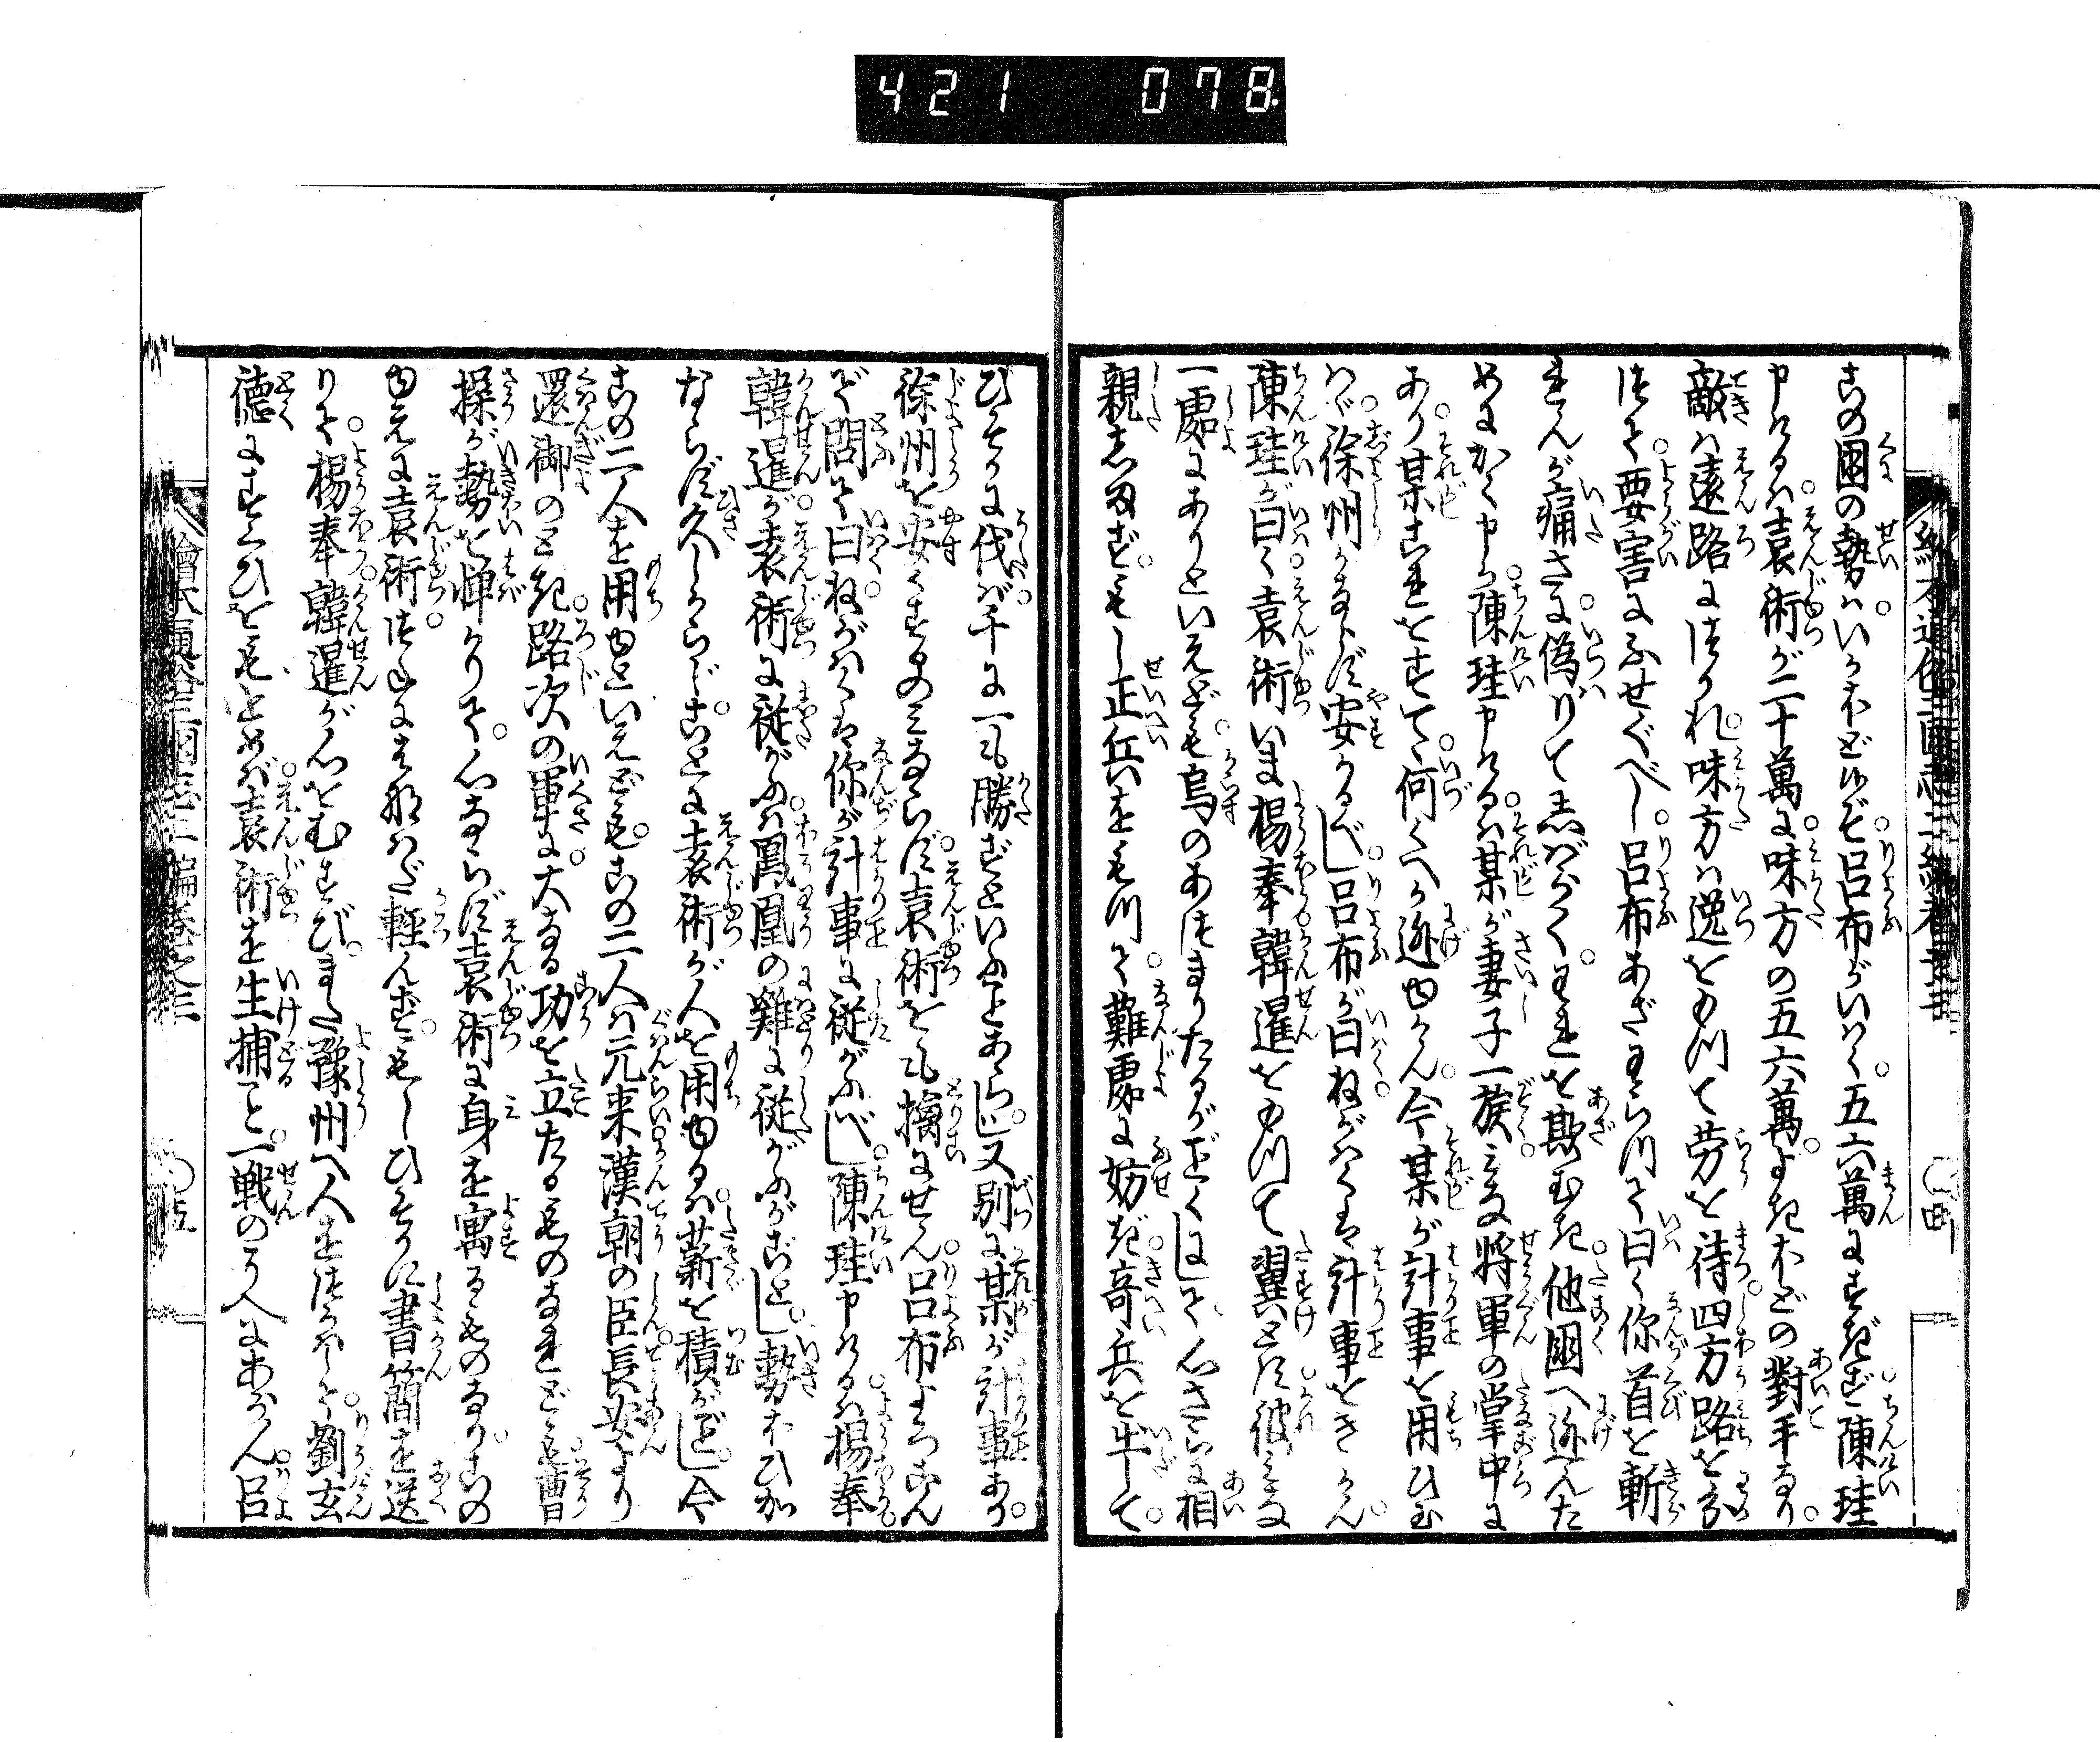 421 078
この國の勢はいかホどゾ呂布がいはく五六萬にすぎず陳珪
申けるは袁術が二十萬に味方の五六萬よきホどの對手なり
敵は遠路につかれ味方は逸をもつて労を待四方路を分
つて要害にふせぐべし呂布あざわらつて曰く你首を斬
れんが痛さに偽りてしばらくわれを欺むき他國へ逃んた
めにかく申か陳珪申けるは某が妻子一族みな將軍の掌中に
あり某これをすてゝ何くへか逃ゆかん今某が計事を用ひ玉
はゞ徐州かならず安かるべし呂布が曰ねがはくは計事をきかん
陳珪が曰く袁術いま楊奉韓暹をもつて翼とす彼みな
一處にありといへども烏のあつまりたるがごとくにして心さらに相
親しまずもし正兵をもつて難處に妨ぎ奇兵を出して
ひそかに伐ば千に一も勝ずといふことあらじ又別に某が計事あり
徐州を安くするのみならず袁術をも擒にせん呂布よろこん
で問て曰ねがはくは你が計事に従がふべし陳珪申けるは楊奉
韓暹が袁術に従がふは鳳凰の雞に従がふがごとし勢ホひ叶
ならず久しからじことに袁術が人を用ゆるは薪を積がごとし今
この二人を用ゆといへどもこの二人は元来漢朝の臣長安より
還御のとき路次の軍に大なる功を立たるものなれども曹
操が勢を憚かりて心ならず袁術に身を寓るものなりこの
ゆへに袁術つねにはなはだ軽んずもしひそかに書簡を送
りて楊奉韓暹が心をむすびまた豫州へ人をつかはして劉玄
德にすくひをもとめば袁術を生捕こと一戦のうへにあらん呂
繪本通俗三國志二編巻之三